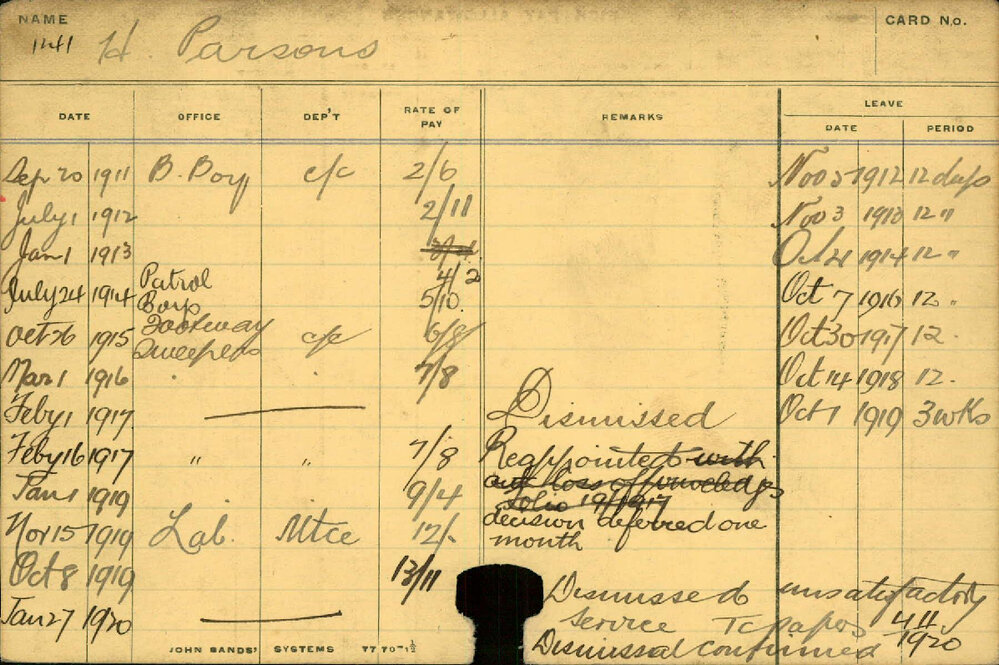 NAME
CARD No.
1241 H. Parsons
DATE OFFICE DEP'T RATE OF PAY REMARKS LEAVE
DATE PERIOD
Sep 20 1911 B. Boy c/c 2/6 Nov 5 1912 12 days
July 1 1912 2/11 Nov 3 1913 12 "
Jan 1 1913 Oct 21 1914 12 "
4/2
July 24 1914 Patrol Boys 5/10 Oct 7 1916 12 "
Oct 26 1915 Footway Sweepers c/c 6/8 Oct 30 1917 12 "
Mar 1 1916 " " 7/8 Oct 14 1918 12 "
Feby 1 1917 Dismissed Oct 1 1919 3 wks
Feby 16 1917 " " 7/8 Reappointed with
out loss of privileges
Jan 1 1919 9/4 Folio 19/1917
Nov 15 1919 Lab. Mtce 12/- decision deferred one
month
Oct 8 1919 13/11
Dismissed unsatisfactory
Jan 27 1920 service T.C. papers 411/1920
Dismissal confirmed
JOHN SANDS' SYSTEMS 77 70-1½